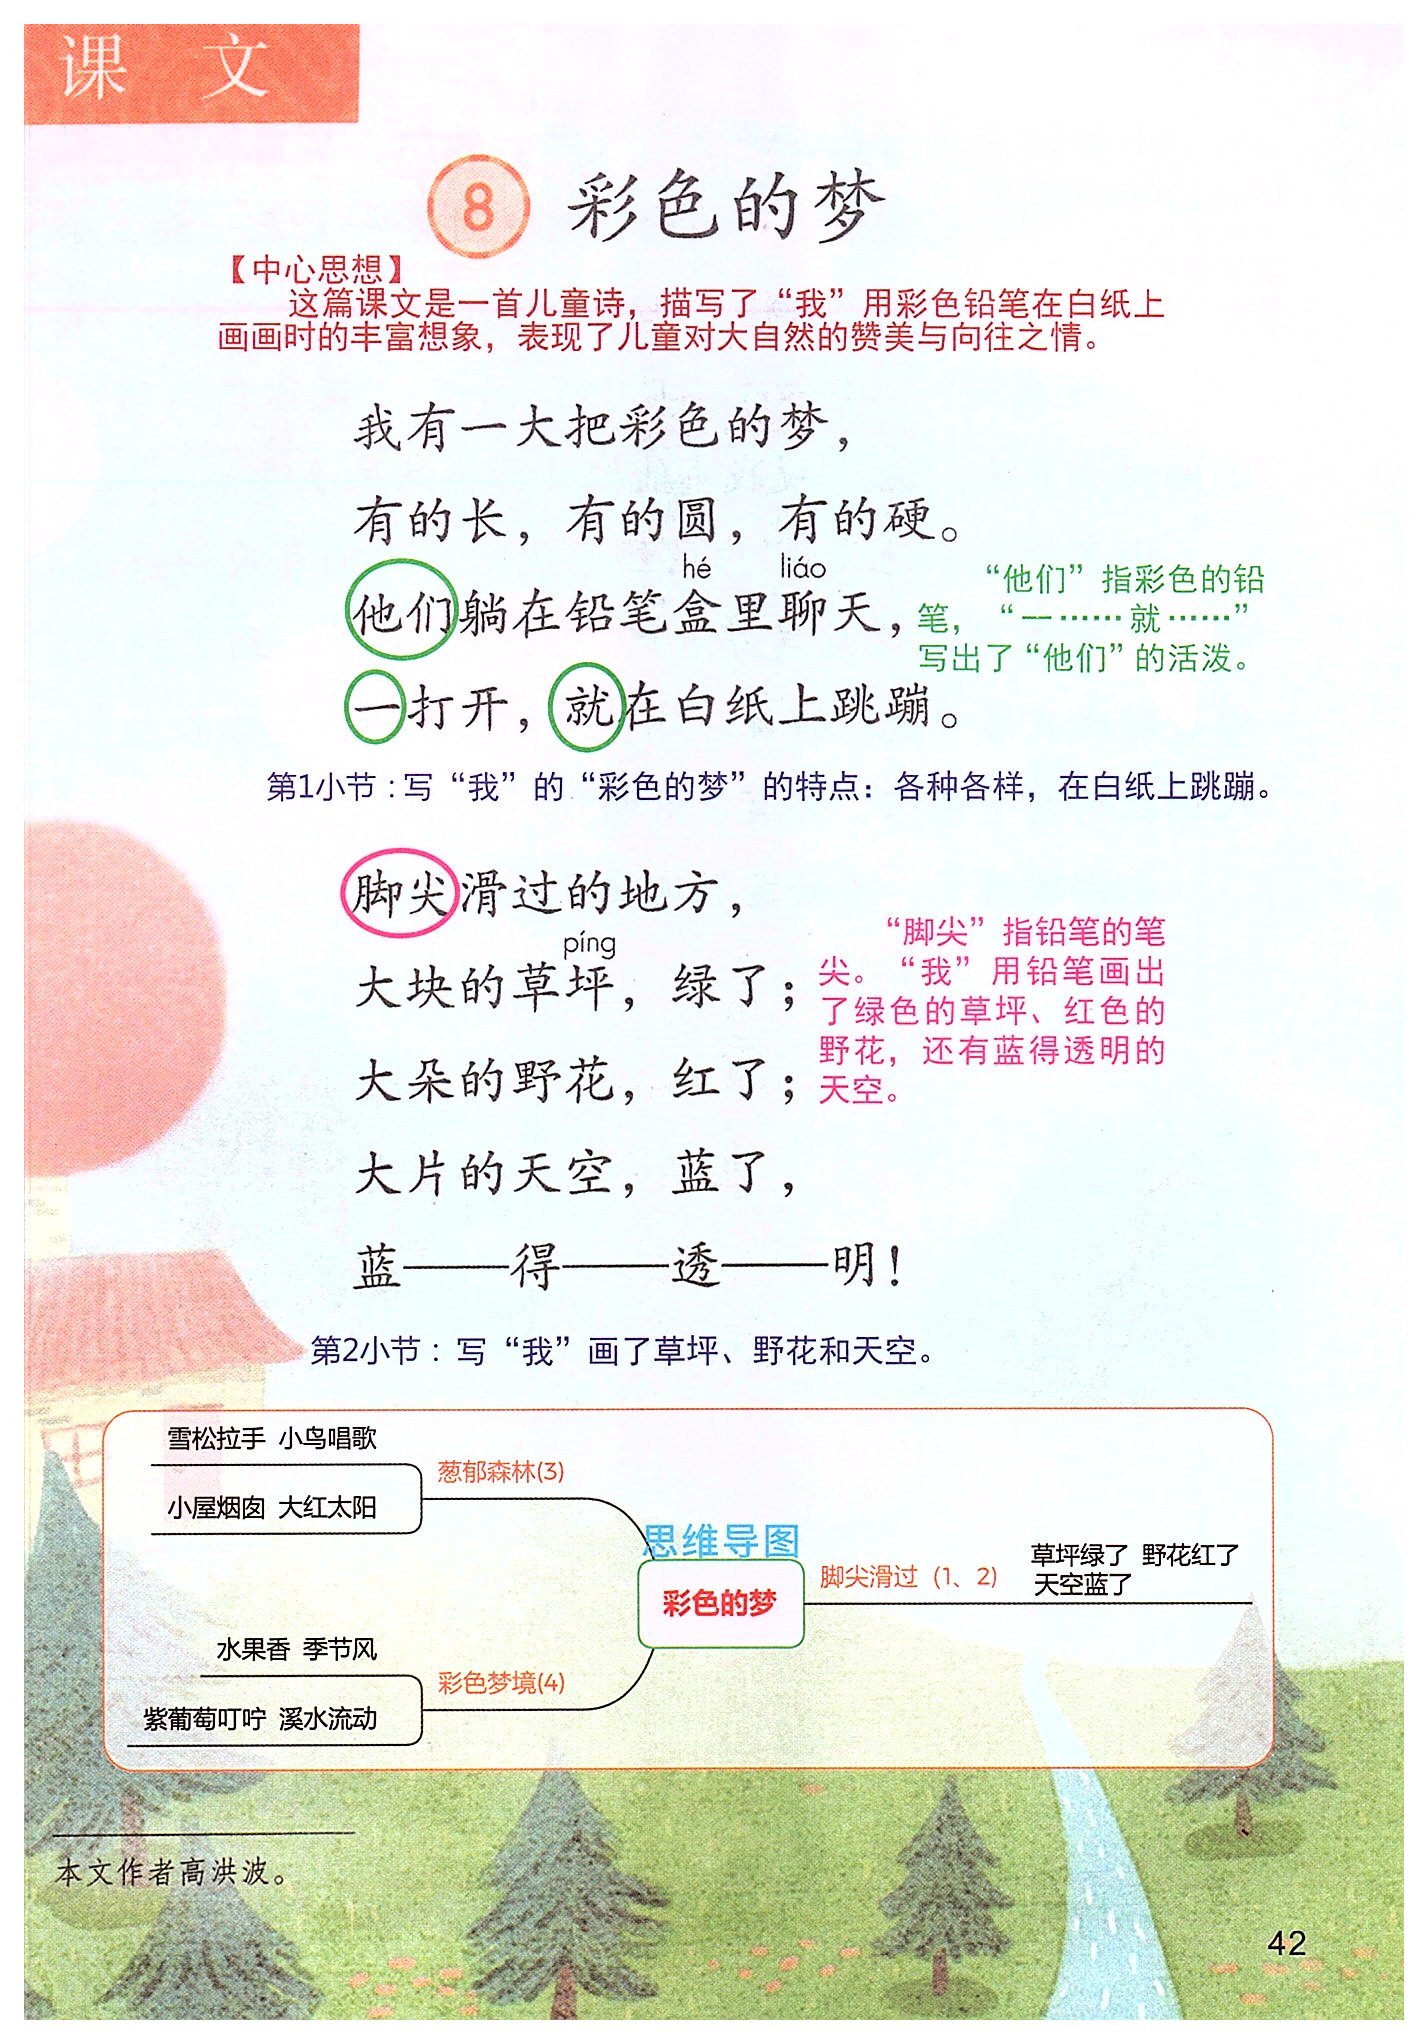 课 文
8 彩色的梦
【中心思想】
这篇课文是一首儿童诗，描写了“我”用彩色铅笔在白纸上
画画时的丰富想象，表现了儿童对大自然的赞美与向往之情。
我有一大把彩色的梦，
有的长，有的圆，有的硬。
hé liáo
他们躺在铅笔盒里聊天，
一打开，就在白纸上跳蹦。
“他们”指彩色的铅
笔，“一……就……”
写出了“他们”的活泼。
第1小节：写“我”的“彩色的梦”的特点：各种各样，在白纸上跳蹦。
脚尖滑过的地方，
píng
大块的草坪，绿了；
大朵的野花，红了；
大片的天空，蓝了，
蓝——得——透——明！
“脚尖”指铅笔的笔
尖。“我”用铅笔画出
了绿色的草坪、红色的
野花，还有蓝得透明的
天空。
第2小节：写“我”画了草坪、野花和天空。
雪松拉手 小鸟唱歌
葱郁森林(3)
小屋烟囱 大红太阳
思维导图
彩色的梦
脚尖滑过（1、2）
草坪绿了 野花红了
天空蓝了
水果香 季节风
彩色梦境(4)
紫葡萄叮咛 溪水流动
本文作者高洪波。
42